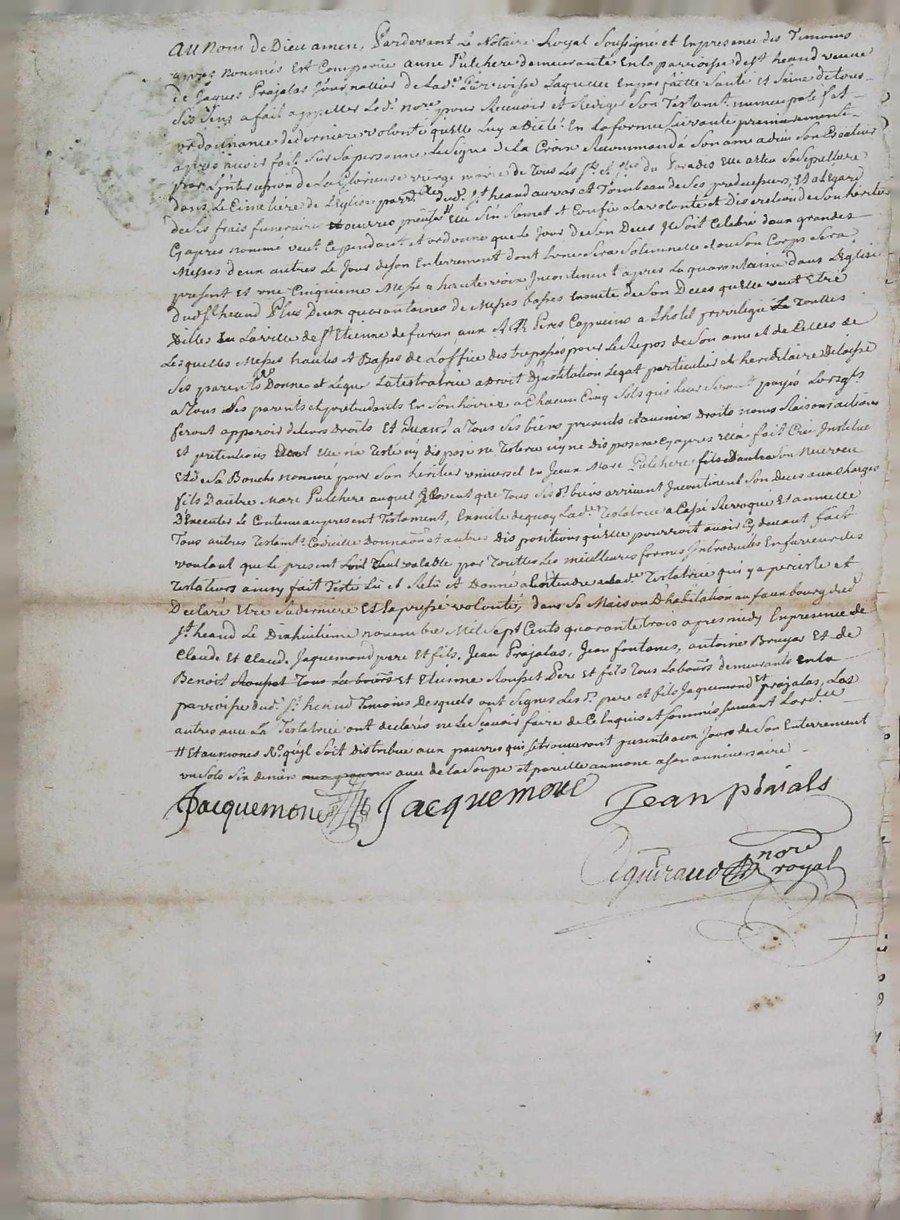 Au Nom de Dieu amen, Pardevant Le Notaire Royal Soussigné et En presence des Temoins
apres nommés Est Comparüe anne Pulchere demeurante En la parroisse de st heand veuve
de Jaques Prajalas Journallier de Lad. Parroisse Laquelle En parfaitte Santé et Saine de tous
Ses Sens a fait appeller Led. nore pour Recevoir et Rediger Son Testamt. nuncupatif Et
ordonnance de derniere volonté qu'elle Luy a dicté En La forme Suivante premierement
apres avoir fait Sur Sa personne Le Signe de La Croix Recommandé Son ame a dieu Son Createur
par L'intercession de La Glorieuse vierge marie de Tous Les sts et stes du Paradis Elle a Elu Sa Sepulture
dans Le Cimetiere de L'Eglise parr. dud. st heand au vas et Tombeau de Ses predecesseurs, Et a l'egard
de Ses frais funeraires Et oeuvres pieuses Elle S'en Somet et Confie a la volonté et Discretion de Son heritier
Cy apres nommé veut Cependant et ordonne que Le Jour de Son Deces Il Soit Celebré deux grandes
Messes deux autres Le Jour de Son Enterrement dont L'une Sera Solemnelle et ou Son Corps Sera
present Et une Cinquieme Messe a haute voix Incontinent apres La quarantaine dans L'Eglise
dud. st heand Plus Deux quarantaines de Messes basses Ensuite de Son Deces qu'elle veut Etre
Dittes En La ville de st Etienne de furan, aux R. R. Peres Capucins a L'hotel privilegié Toutes
Lesquelles Messes hautes et Basses de L'office des trepassés pour Le Repos de Son ame et de Celles de
Ses parents Donne et Legue La testatrice a droit D'Institution Legat particulier et hereditaire Delaisse
a Tous Ses parents et pretendants En Son hoirie a Chacun Cinq Sols qui leur Seront payés Lorsqls
feront apparoir de leurs Droits Et Quant a Tous Ses biens presents et avenirs Droits noms Raisons actions
Et pretentions Dont Elle na Testé ny dispose ne Testera ny ne disposera Cy apres Elle a fait Cree Institue
Et de Sa Bouche nommé pour Son heritier universel En Jean Marc Pulchere fils Dautre Son Neveu
fils D'autre Marc Pulchere auquel Elle veut que Tous Ses dt. biens arrivent Incontinent Son Deces aux Charges
D'Executer Le Contenu au present Testament, Ensuite de quoy Lad. Testatrice a Cassé Revoqué Et annullé
Tous autres Testamts. Codicille Donnaon et autres dispositions qu'Elle pourroit avoir Cy devant fait
voulant que Le present Soit Seul valable par Touttes Les meilleures formes Introduites En faveur des
Testateurs ainsy fait Testé Lû et Relû et Donné a Entendre a Lad. Testatrice qui y a persisté et
Declaré Etre Sa derniere Et Expresse volonté, dans Sa Maison D'habitation au fauxbourg dud.
st heand Le Dixhuitieme novembre Mil Sept Cents quarante trois apres midy En presence de
Claude Et Claude Jaquemond pere Et fils, Jean Prajalas, Jean fontanes, antoine Bruyas Et de
Benoit Rouset Tous Labours Et Etienne Rouset Pere Et fils Tous Labours demeurants En la
parroisse dud. st heand Temoins Desquels ont Signés Les dt. pere et fils Jaquemond Et Prajalas, Les
autres avec La Testatrice ont declarés ne Le Sçavoir faire de Ce Enquis et Sommés Suivant L'ord.ce
# Et aumones qu'il Soit Distribué aux pauvres qui Se trouveront presents aux Jours de Son Enterrement
un Sols Six deniers aux pauvres avec de La Soupe et pareille aumone a Son anniversaire
Jacquemond Jacquemond Jean prajals
guiraud nore
royal